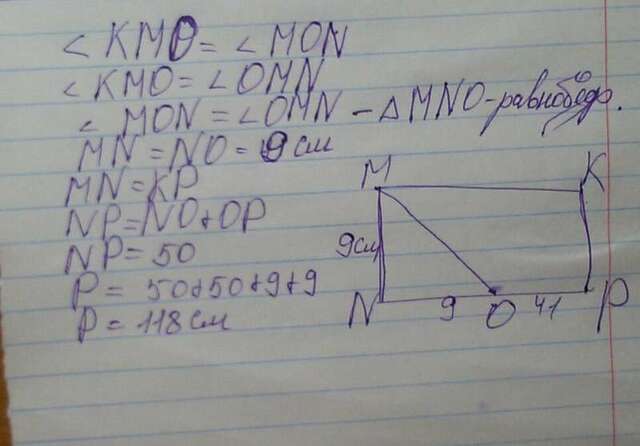 ∠KMO = ∠MON
∠KMO = ∠OMN
∠MON = ∠OMN – ΔMNO – равнобедр.
MN = NO = 9 см
MN = KP
NP = NO + OP
NP = 50
P = 50+50+9+9
P = 118 см
M K
9см
N 9 O 41 P